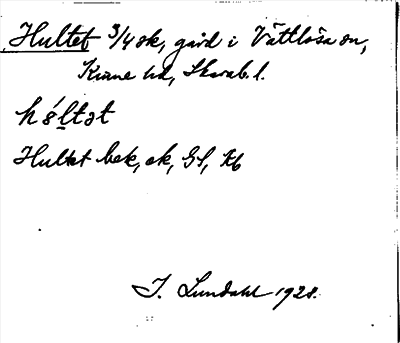 Hultet 3/4 sk, gård i Vättlösa sn,
Kinne hd, Skarab. l.
hɵ́ltət
Hultet bek, ek, GS, Kb
I. Lundahl 1928.